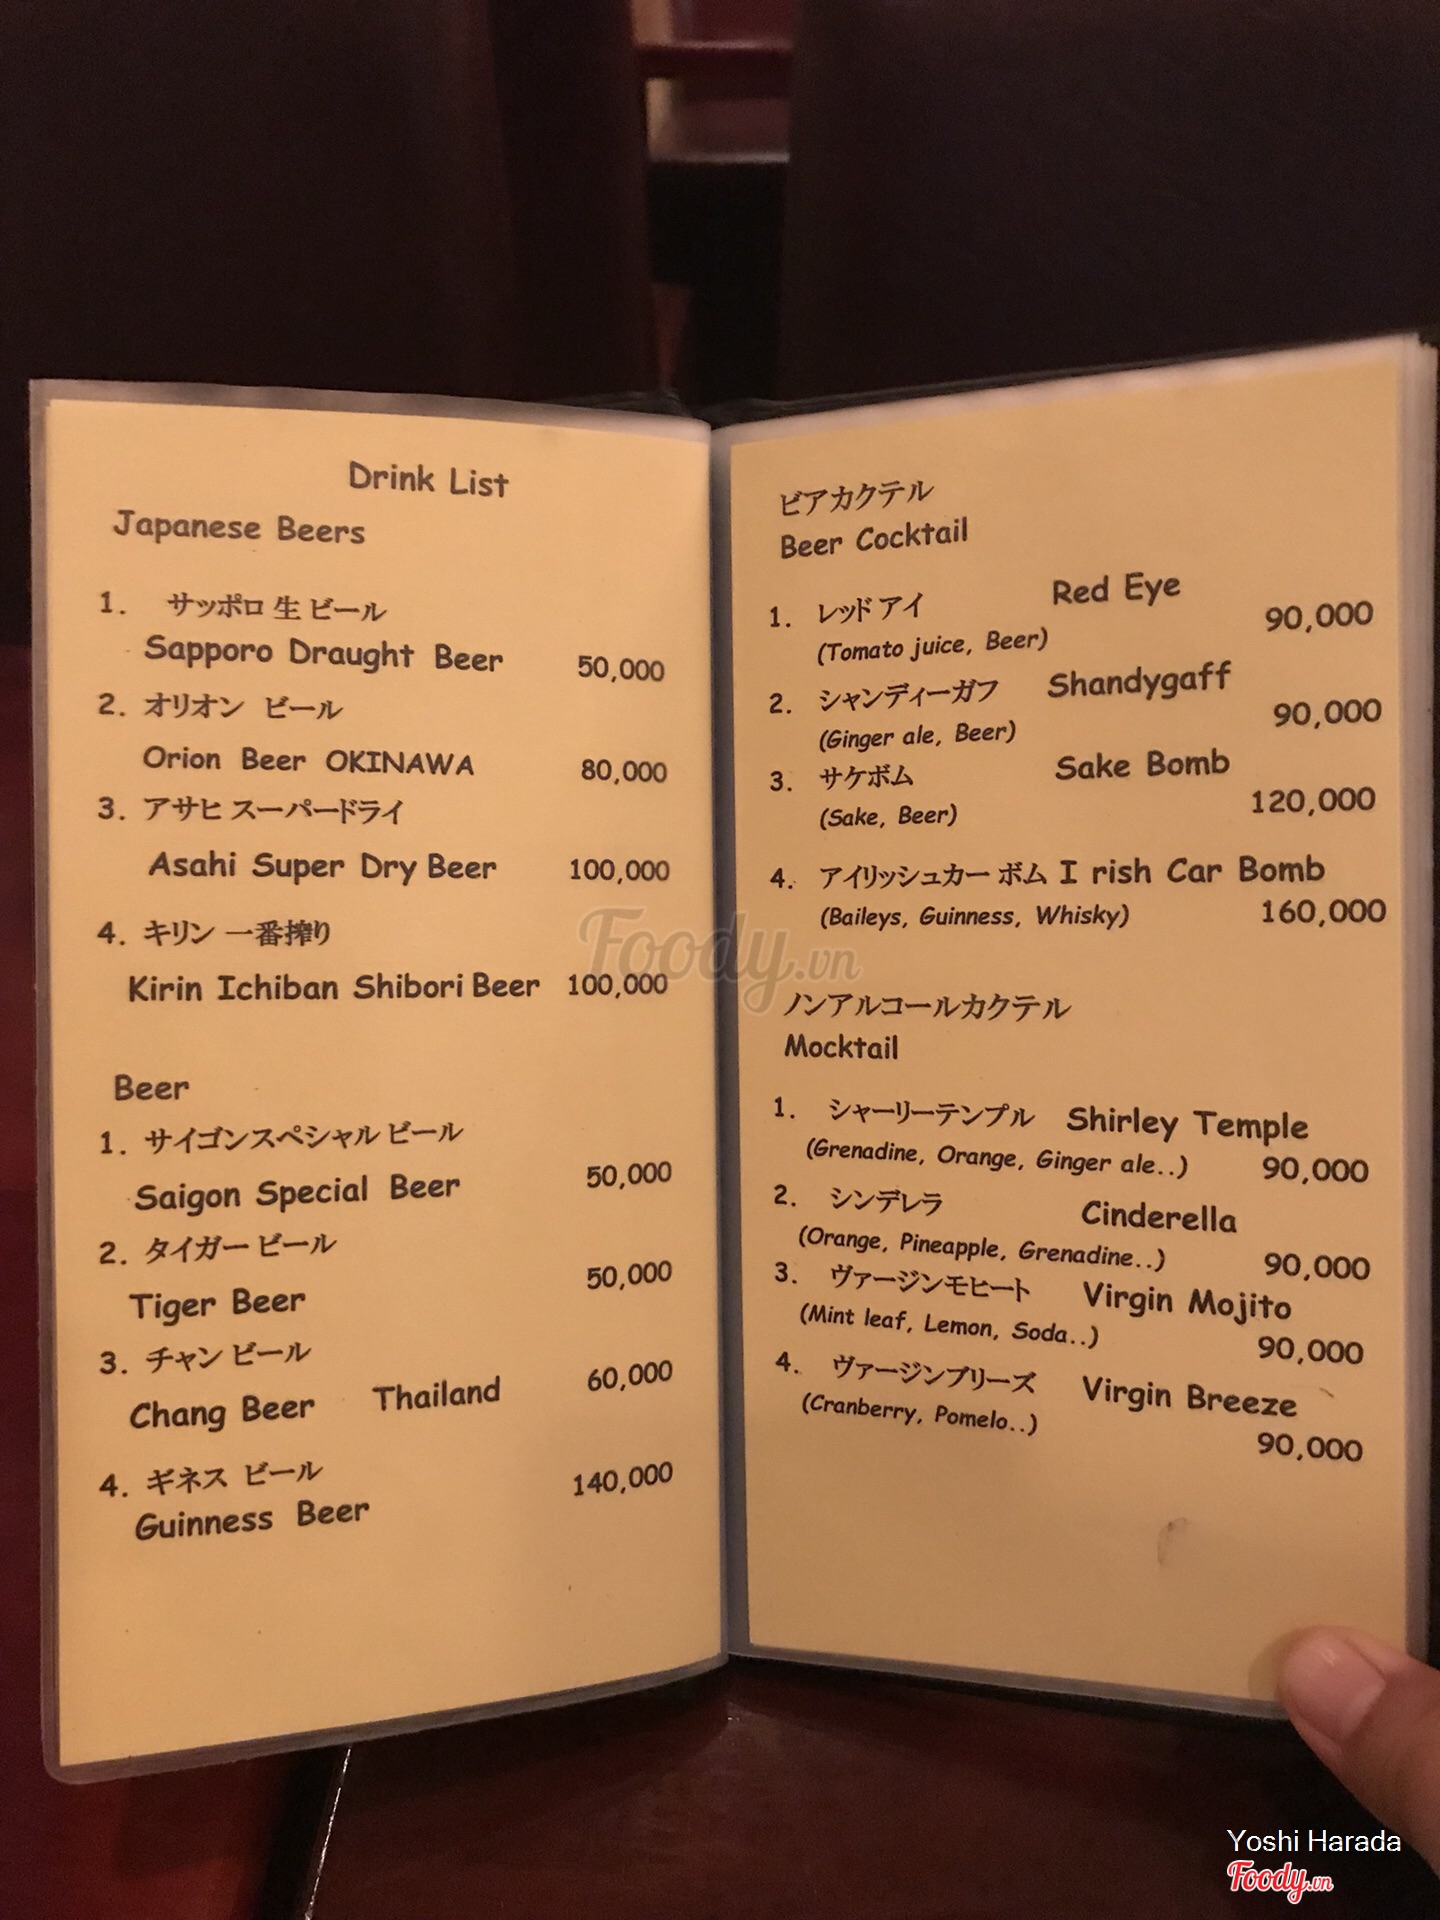 Drink List
Japanese Beers
1. サッポロ 生 ビール
Sapporo Draught Beer 50,000
2. オリオン ビール
Orion Beer OKINAWA 80,000
3. アサヒ スーパードライ
Asahi Super Dry Beer 100,000
4. キリン 一番搾り
Kirin Ichiban Shibori Beer 100,000
Beer
1. サイゴンスペシャル ビール
Saigon Special Beer 50,000
2. タイガー ビール
Tiger Beer 50,000
3. チャン ビール
Chang Beer Thailand 60,000
4. ギネス ビール
Guinness Beer 140,000
ビアカクテル
Beer Cocktail
1. レッド アイ Red Eye
(Tomato juice, Beer) 90,000
2. シャンディーガフ Shandygaff
(Ginger ale, Beer) 90,000
3. サケボム Sake Bomb
(Sake, Beer) 120,000
4. アイリッシュカー ボム I rish Car Bomb
(Baileys, Guinness, Whisky) 160,000
ノンアルコールカクテル
Mocktail
1. シャーリーテンプル Shirley Temple
(Grenadine, Orange, Ginger ale..) 90,000
2. シンデレラ Cinderella
(Orange, Pineapple, Grenadine..) 90,000
3. ヴァージンモヒート Virgin Mojito
(Mint leaf, Lemon, Soda..) 90,000
4. ヴァージンブリーズ Virgin Breeze
(Cranberry, Pomelo..) 90,000
Foody.vn
Yoshi Harada
Foody.vn